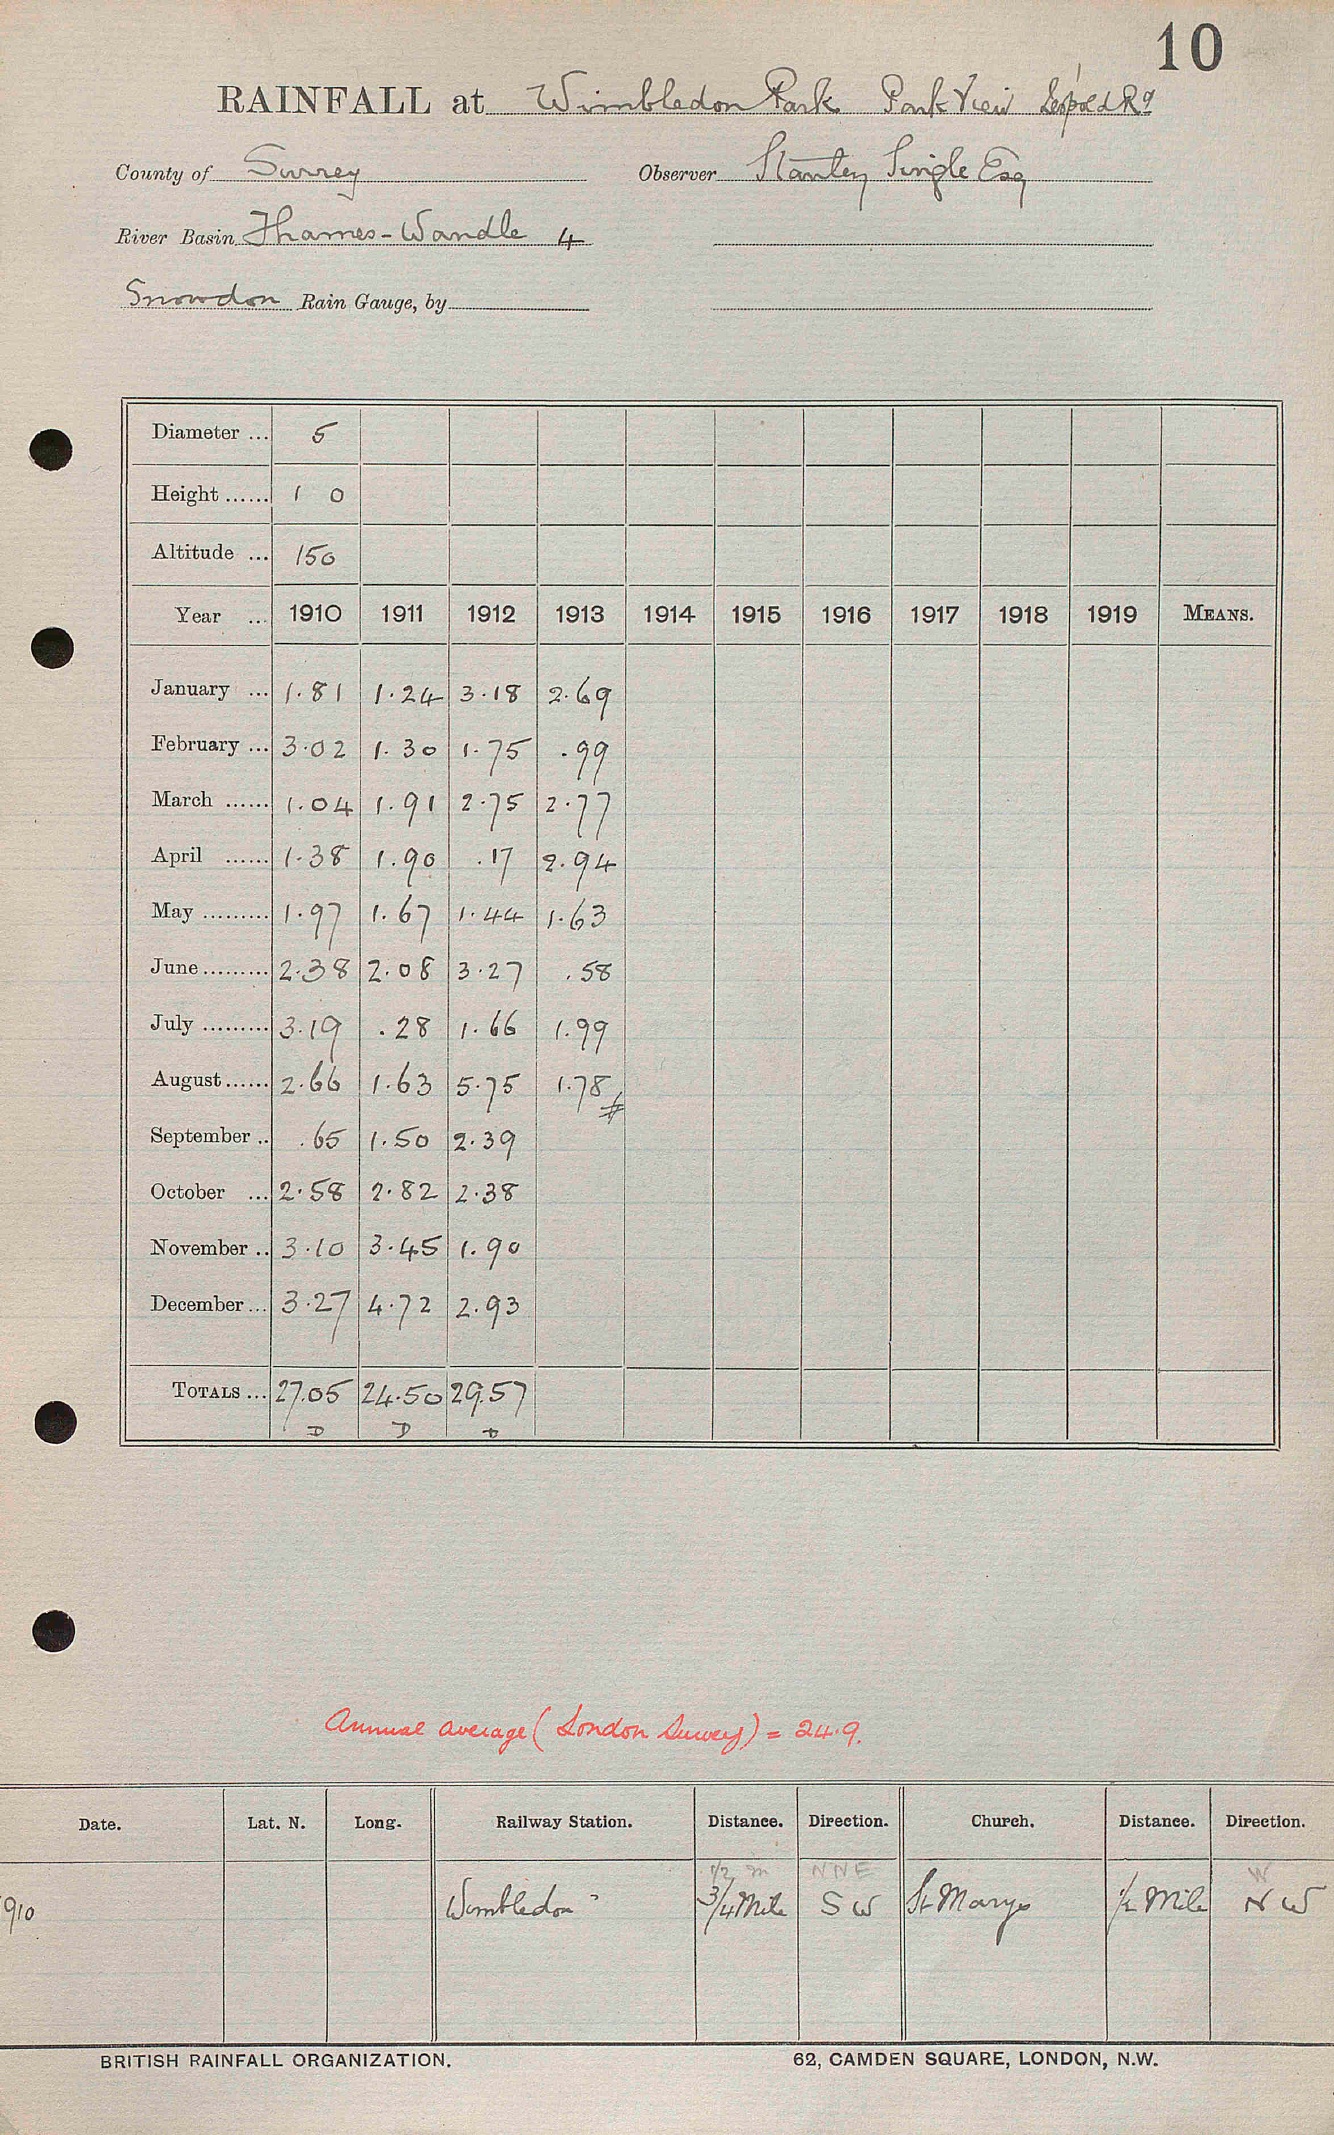 10
RAINFALL at Wimbledon Park Park View Leopold Rd
County of Surrey Observer Stanley Single Esq
River Basin Thames-Wandle 4
Snowdon Rain Gauge, by
Diameter ... 5
Height ...... 1 0
Altitude ... 150
Year ... 1910 1911 1912 1913 1914 1915 1916 1917 1918 1919 MEANS.
January ... 1.81 1.24 3.18 2.69
February ... 3.02 1.30 1.75 .99
March ...... 1.04 1.91 2.75 2.77
April ...... 1.38 1.90 .17 2.94
May ......... 1.97 1.67 1.44 1.63
June ......... 2.38 2.08 3.27 .58
July ......... 3.19 .28 1.66 1.99
August ...... 2.66 1.63 5.75 1.78
September .. .65 1.50 2.39
October ... 2.58 2.82 2.38
November .. 3.10 3.45 1.90
December ... 3.27 4.72 2.93
TOTALS ... 27.05 24.50 29.57
D D D
Annual average (London Survey) = 24.9.
Date. Lat. N. Long. Railway Station. Distance. Direction. Church. Distance. Direction.
1/2 m NNE W
910 Wimbledon 3/4 Mile SW St Marys 1/2 Mile NW
BRITISH RAINFALL ORGANIZATION. 62, CAMDEN SQUARE, LONDON, N.W.